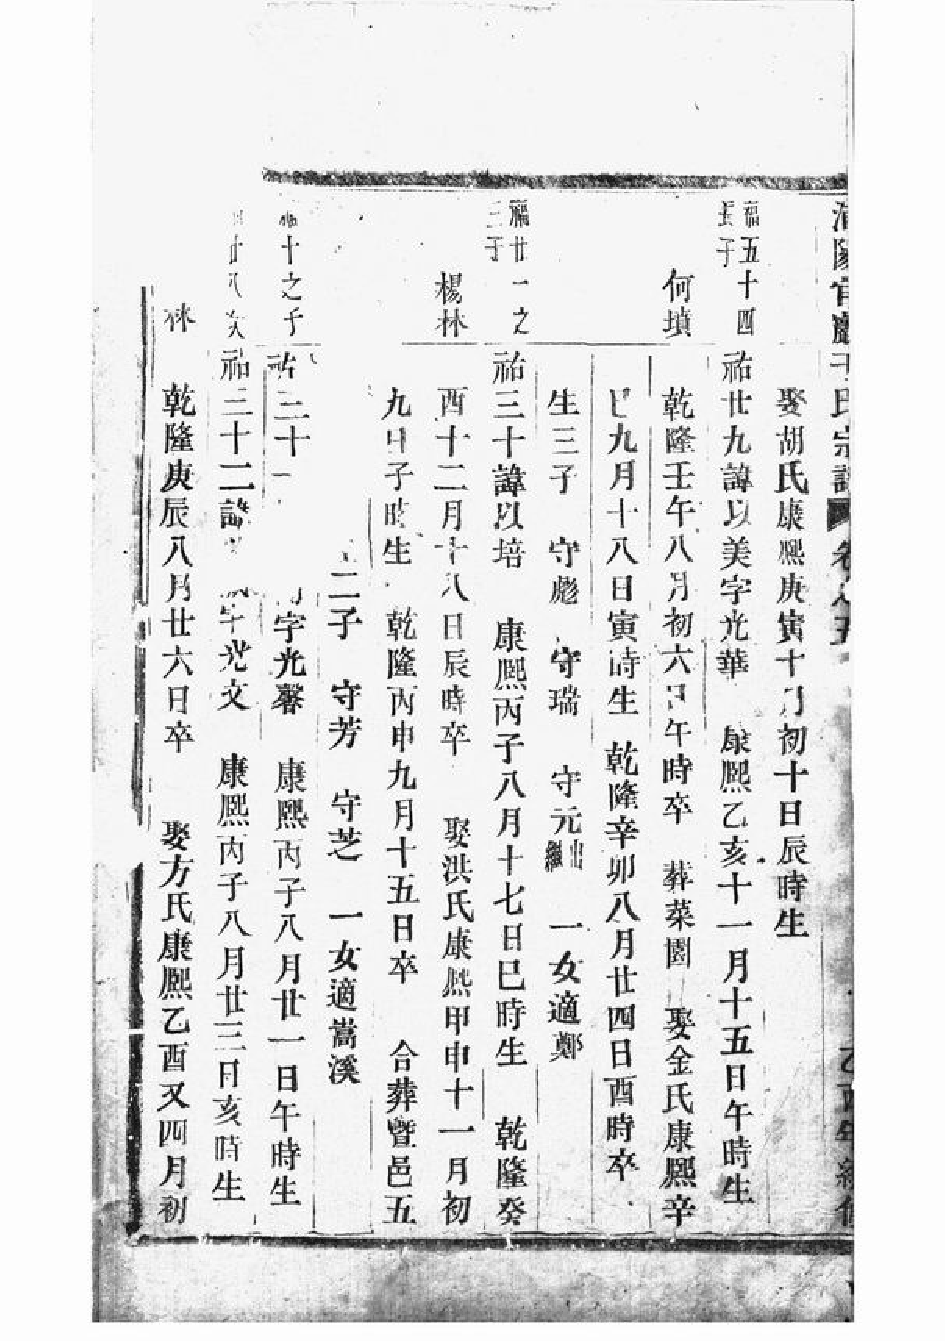 氏宗譜 卷
娶胡氏康熙庚寅十月初十日辰時生
福五十四
長子
祐廿九諱以美字光華 康熙乙亥十一月十五日午時生
何墳
乾隆壬午八月初六日午時卒 葬菜園 娶金氏康熙辛
巳九月十八日寅時生 乾隆辛卯八月廿四日酉時卒
生三子 守彪 守瑞 守元出繼 一女適鄭
福廿一之
三子
祐三十諱以培 康熙丙子八月十七日巳時生 乾隆癸
楊林
酉十二月十八日辰時卒 娶洪氏康熙甲申十一月初
九日子時生 乾隆丙申九月十五日卒 合葬暨邑五
二子 守芳 守芝 一女適嵩溪
十之子
祐三十一 字光馨 康熙丙子八月廿一日午時生
廿八次
祐三十二諱 字光文 康熙丙子八月廿三日亥時生
林
乾隆庚辰八月廿六日卒 娶方氏康熙乙酉又四月初